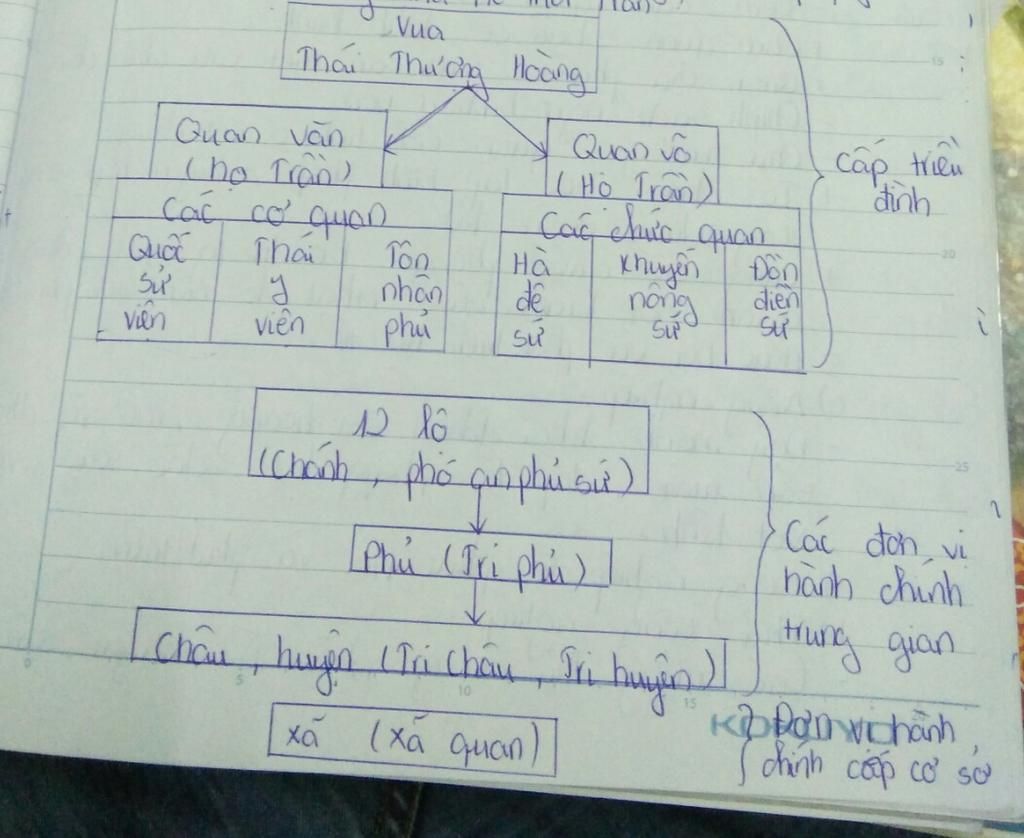 Vua
Thái Thương Hoàng
Quan văn
(họ Trần)
Quan võ
(Họ Trần)
Các cơ quan
Quốc
sử
viên
Thái
y
viên
Tôn
nhân
phủ
Các chức quan
Hà
đê
sứ
Khuyến
nông
sứ
Đồn
điền
sứ
cấp triều
đình
12 lộ
(Chánh, phó an phủ sứ)
Phủ (Tri phủ)
Châu, huyện (Tri châu, Tri huyện)
Các đơn vị
hành chính
trung gian
xã (xã quan)
Đơn vị hành
chính cấp cơ sở